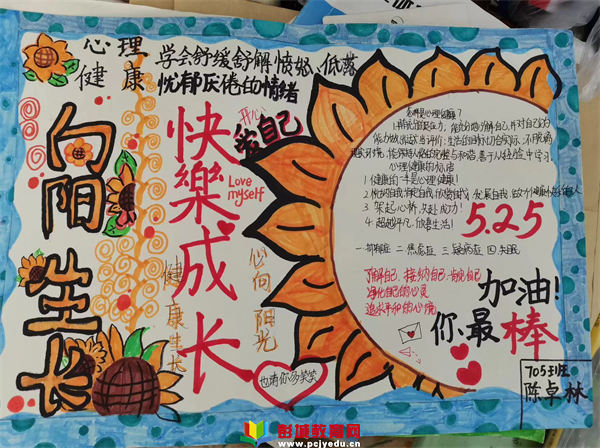 心理
健康
学会舒缓舒解愤怒、低落
忧郁厌倦的情绪
向阳生长
快樂成长
开心
爱自己
Love
myself
健康生长
心向阳光
也请你多笑笑
心理健康的标语
1.健康的一半是心理健康!
3.架起心桥,共赴成功!
4.超越平凡,欣喜生活!
5.25
一.抑郁症 二.焦虑症 三.疑病症 四.失眠
了解自己、接纳自己
净化自己的心灵
追求平和的心境
加油!
你最棒
705班
陈卓林
彭城教育网
www.pcjyedu.cn